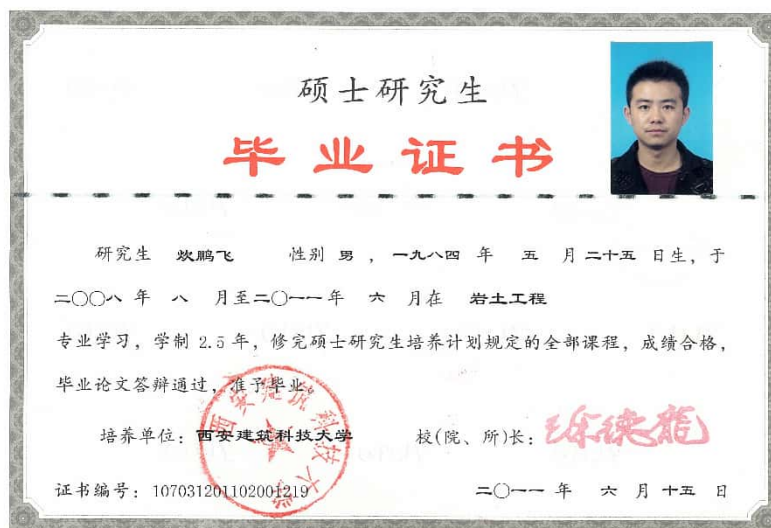 硕士研究生
毕业证书
研究生 炊鹏飞 性别 男 ，一九八四 年 五 月二十五 日生，于
二〇〇八 年 八 月至二〇一一年 六 月在 岩土工程
专业学习，学制 2.5 年，修完硕士研究生培养计划规定的全部课程，成绩合格，
毕业论文答辩通过，准予毕业。
培养单位：西安建筑科技大学 校(院、所)长：徐德龙
西安建筑科技大学
证书编号：107031201102001219 二〇一一 年 六 月 十五 日